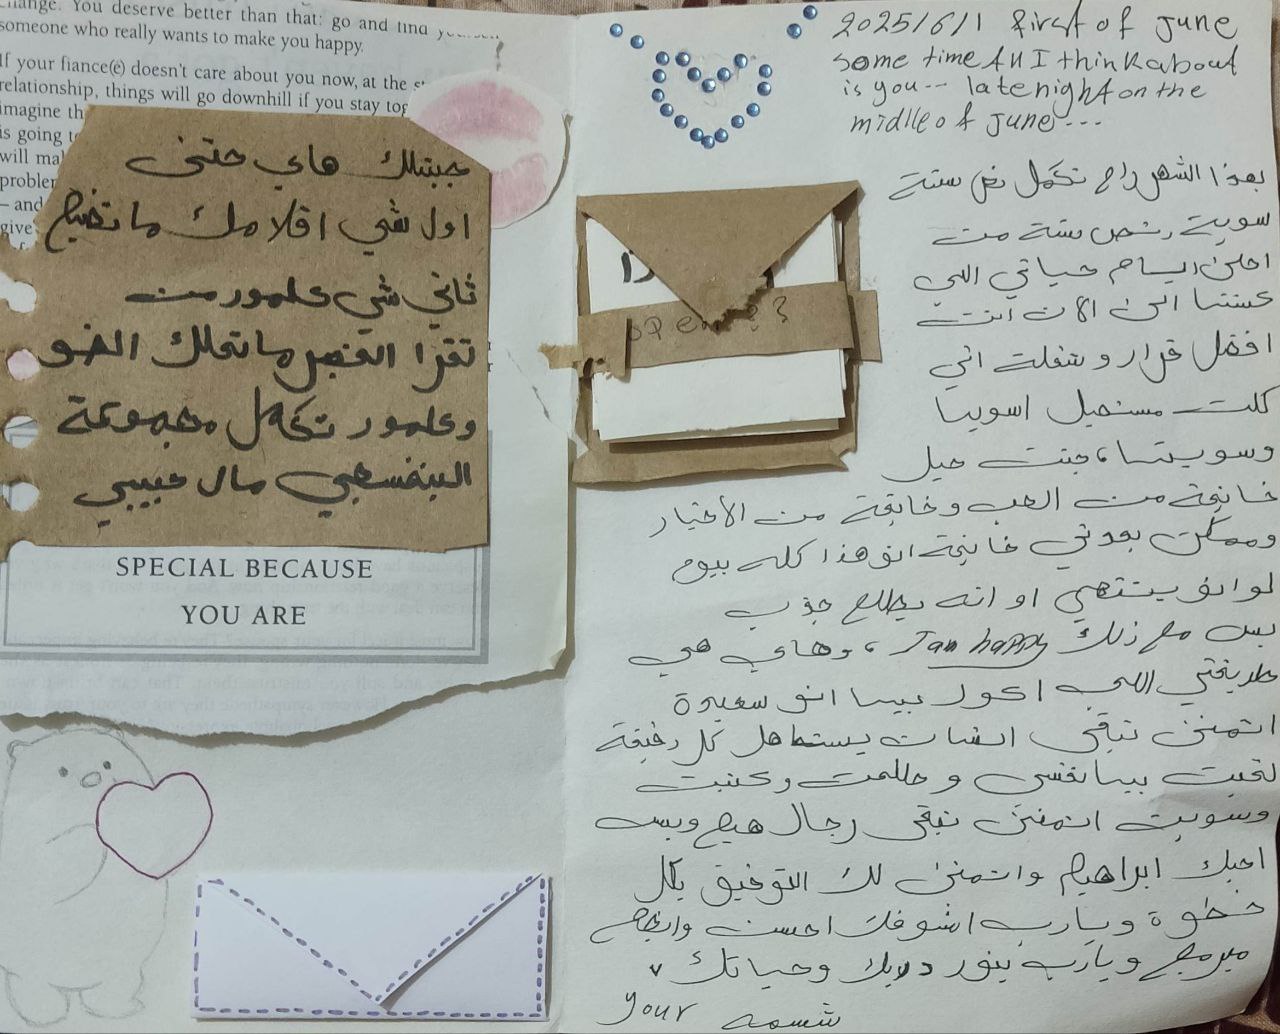 change. You deserve better than that: go and find
someone who really wants to make you happy.
If your fiancé(e) doesn't care about you now, at the
relationship, things will go downhill if you stay
imagine
is going
will
– and
give
جبتلك هاي حتى
اول شي اقلامك ماتضيع
ثاني شي علمود من
تقرا القصص ماتحلك الضو
وعلمود تكمل مجموعة
البنفسجي مال حبيبي
SPECIAL BECAUSE
YOU ARE
2025/6/1 first of june
some time All I think about
is you-- late night on the
midlle of june---
open??
بهذا الشهر راح تكمل نص سنة
سويت نص سنة من
احلى ايام حياتي اللي
عشتها الى الان انت
افضل قرار وشغلة اني
كلت مستحيل اسويها
وسويتها، جنت حيل
خايفة من الحب وخايفة من الاختيار
وممكن بعدني خايفة انو هذا كله بيوم
لو انو ينتهي او انه يطلع جذب
بس مع ذلك I am happy، وهاي هي
طريقتي اللي اكول بيها انو سعيدة
اتمنى تبقى انسان يستاهل كل دقيقة
تخيت بيها نفسي وحلمت وكتبت
وسويت اتمنى تبقى رجال هيج وبس
احبك ابراهيم واتمنى لك التوفيق بكل
خطوة ويارب اشوفك احسن وانجح
مبرمج ويارب ينور دربك وحياتك
your شمسه